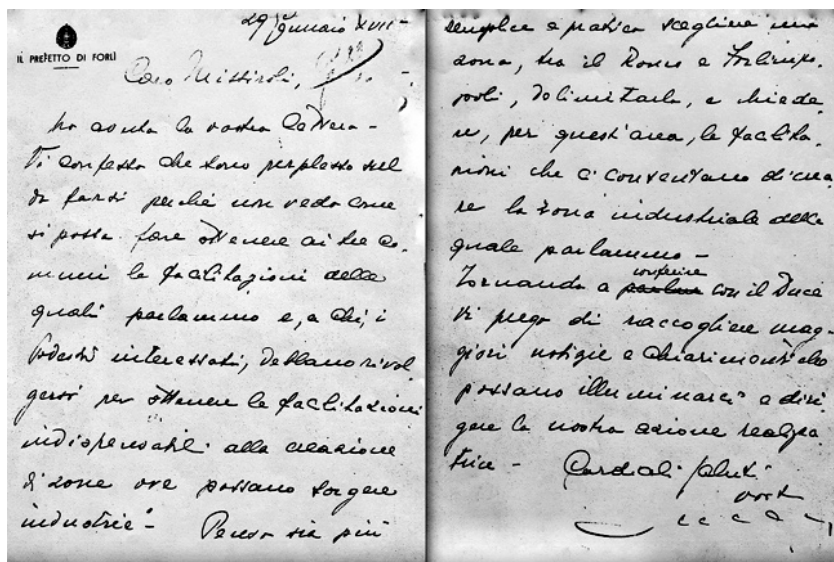 29 Gennaio XVII -
IL PREFETTO DI FORLÌ
Caro Missiroli,
ho avuta la vostra lettera -
Vi confesso che sono perplesso sul
da farsi perché non vedo come
si possa fare ottenere ai tre Co-
muni le facilitazioni delle
quali parlammo e, a chi, i
Podestà interessati, debbano rivol
gersi per ottenere le facilitazioni
indispensabili alla creazione
di zone ove possano sorgere
industrie - Penso sia più
semplice e pratico scegliere una
zona, tra il Ronco e Forlimpo
poli, delimitarla, e chiede
re, per quest'area, le facilita
zioni che ci consentano di crea
re la zona industriale della
quale parlammo -
Tornando a conferire con il Duce
vi prego di raccogliere mag-
giori notizie e chiarimenti che
possano illuminarci e diri
gere la nostra azione realizza
trice - Cordiali saluti
vostro